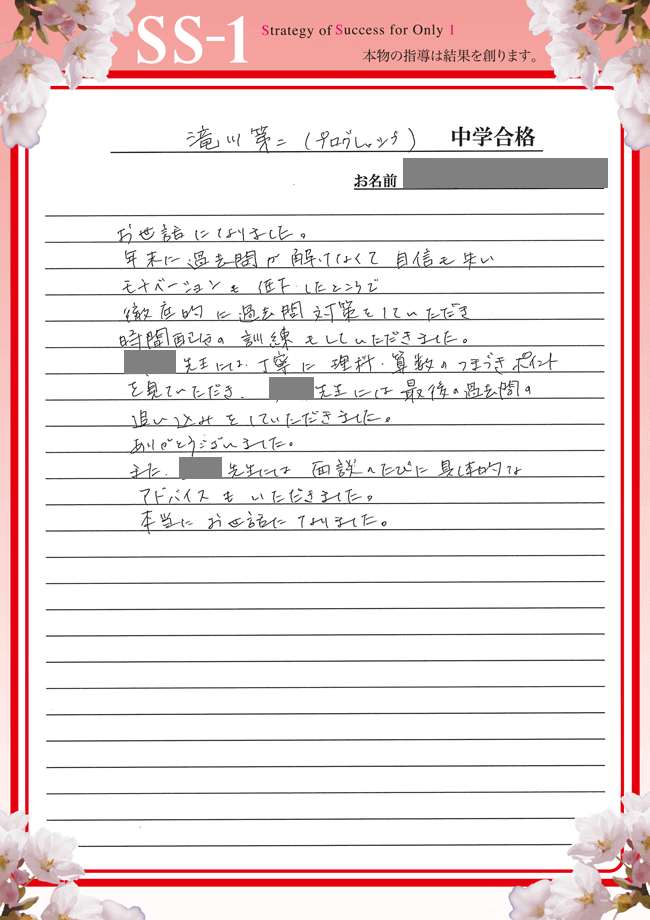 SS-1
Strategy of Success for Only 1
本物の指導は結果を創ります。
滝川第二(プログレッシブ) 中学合格
お名前
お世話になりました。
年末に過去問が解けなくて自信も失い
モチベーションも低下したところで
徹底的に過去問対策をしていただき
時間配分の訓練もしていただきました。
先生には丁寧に理科・算数のつまづきポイント
を見ていただき、先生には最後の過去問の
追い込みをしていただきました。
ありがとうございました。
また、先生には面談のたびに具体的な
アドバイスもいただきました。
本当にお世話になりました。